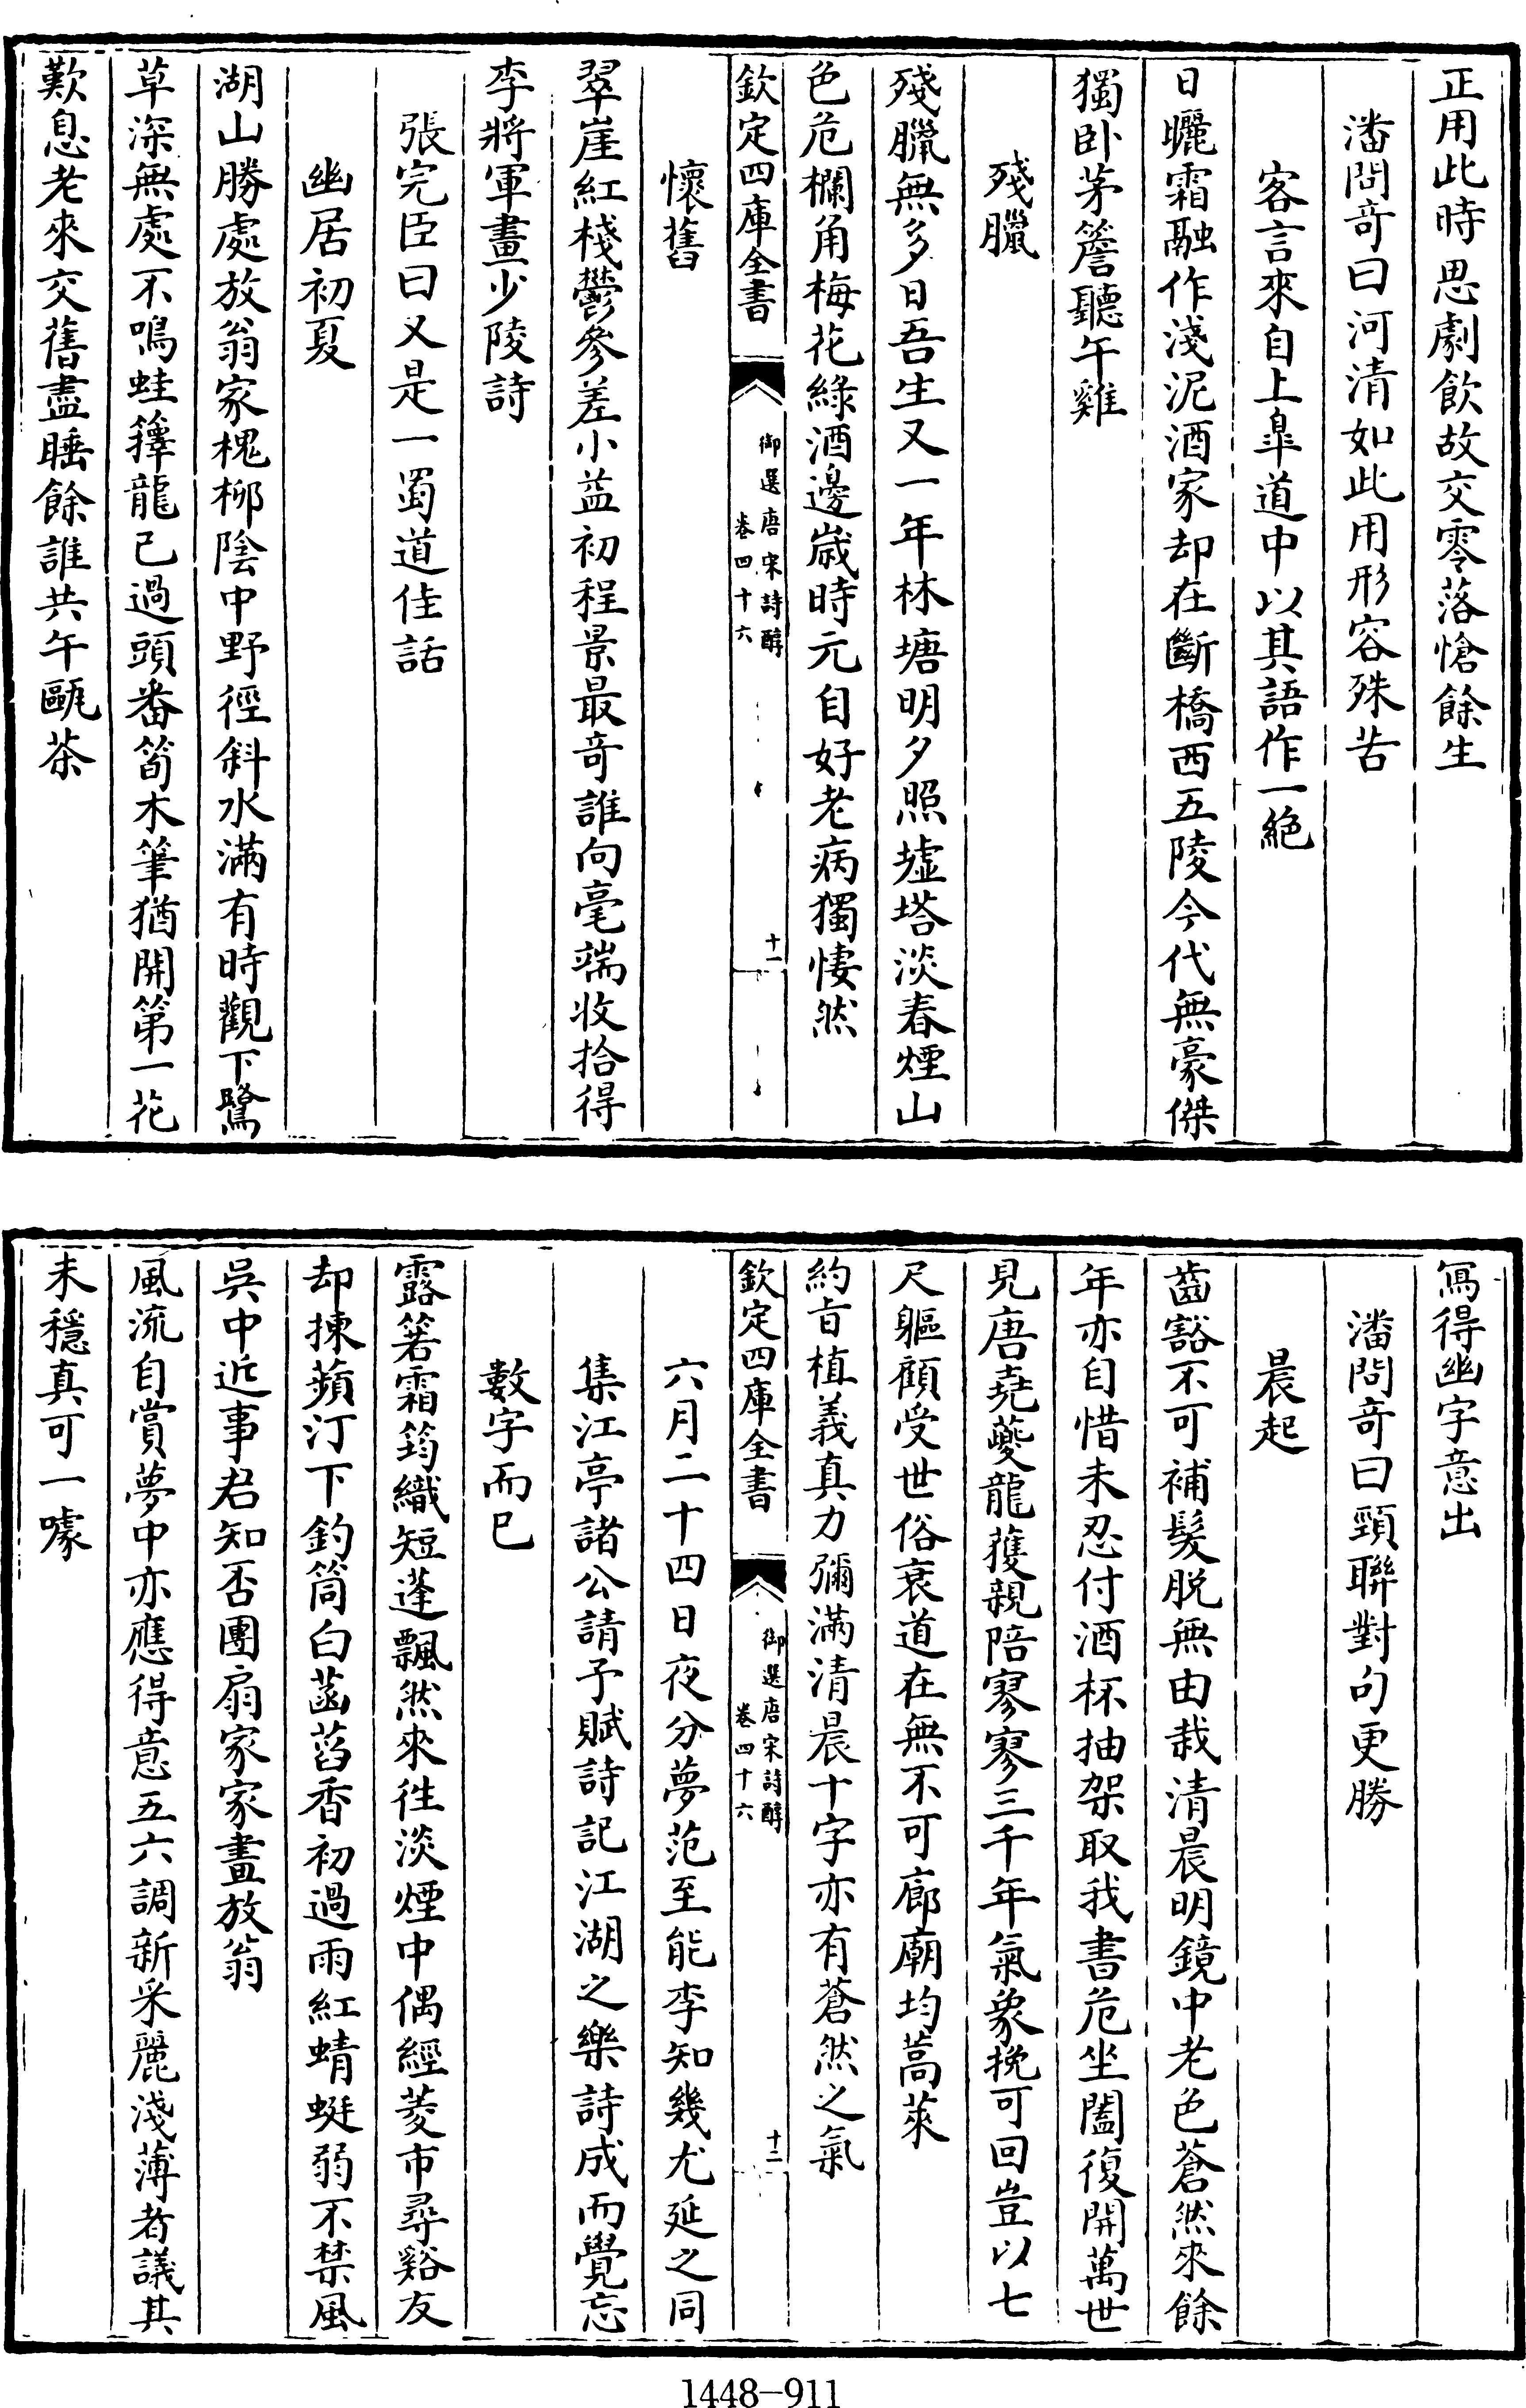 正用此時思劇飲故交零落愴餘生
潘問奇曰河清如此用形容殊苦
客言來自上臯道中以其語作一絶
日曬霜融作淺泥酒家却在斷橋西五陵今代無豪傑
獨卧茅簷聽午雞
殘臘
殘臘無多日吾生又一年林塘明夕照墟塔淡春煙山
色危欄角梅花綠酒邊嵗時元自好老病獨悽然
欽定四庫全書
御選唐宋詩醇
卷四十六
十一
懷舊
翠崖紅棧鬱參差小益初程景最奇誰向毫端收拾得
李將軍畫少陵詩
張完臣曰又是一蜀道佳話
幽居初夏
湖山勝處放翁家槐栁陰中野徑斜水滿有時觀下鷺
草深無處不鳴蛙籜龍已過頭番筍木筆猶開第一花
歎息老來交舊盡睡餘誰共午甌茶
寫得幽字意出
潘問奇曰頸聯對句更勝
晨起
齒豁不可補髮脱無由栽清晨明鏡中老色蒼然來餘
年亦自惜未忍付酒杯抽架取我書危坐闔復開萬世
見唐堯夔龍獲親陪寥寥三千年氣象挽可回豈以七
尺軀顧受世俗哀道在無不可廊廟均蒿萊
約㫖植義真力彌滿清晨十字亦有蒼然之氣
欽定四庫全書
御選唐宋詩醇
卷四十六
十二
六月二十四日夜分夢范至能李知幾尤延之同
集江亭諸公請予賦詩記江湖之樂詩成而覺忘
數字而巳
露箬霜筠織短蓬飄然來往淡煙中偶經菱市尋谿友
却揀蘋汀下釣筒白菡萏香初過雨紅蜻蜓弱不禁風
吳中近事君知否團扇家家畫放翁
風流自賞夢中亦應得意五六調新采麗淺薄者議其
未穩真可一噱
1448-911